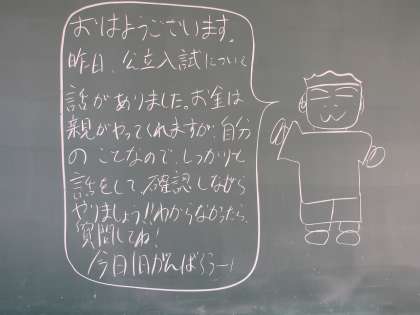 おはようございます。
昨日、公立入試について
話がありました。お金は
親がやってくれますが、自分
のことなので、しっかりと
話をして、確認しながら
やりましょう!!わからなかったら、
質問してね!
今日1日がんばろうー!